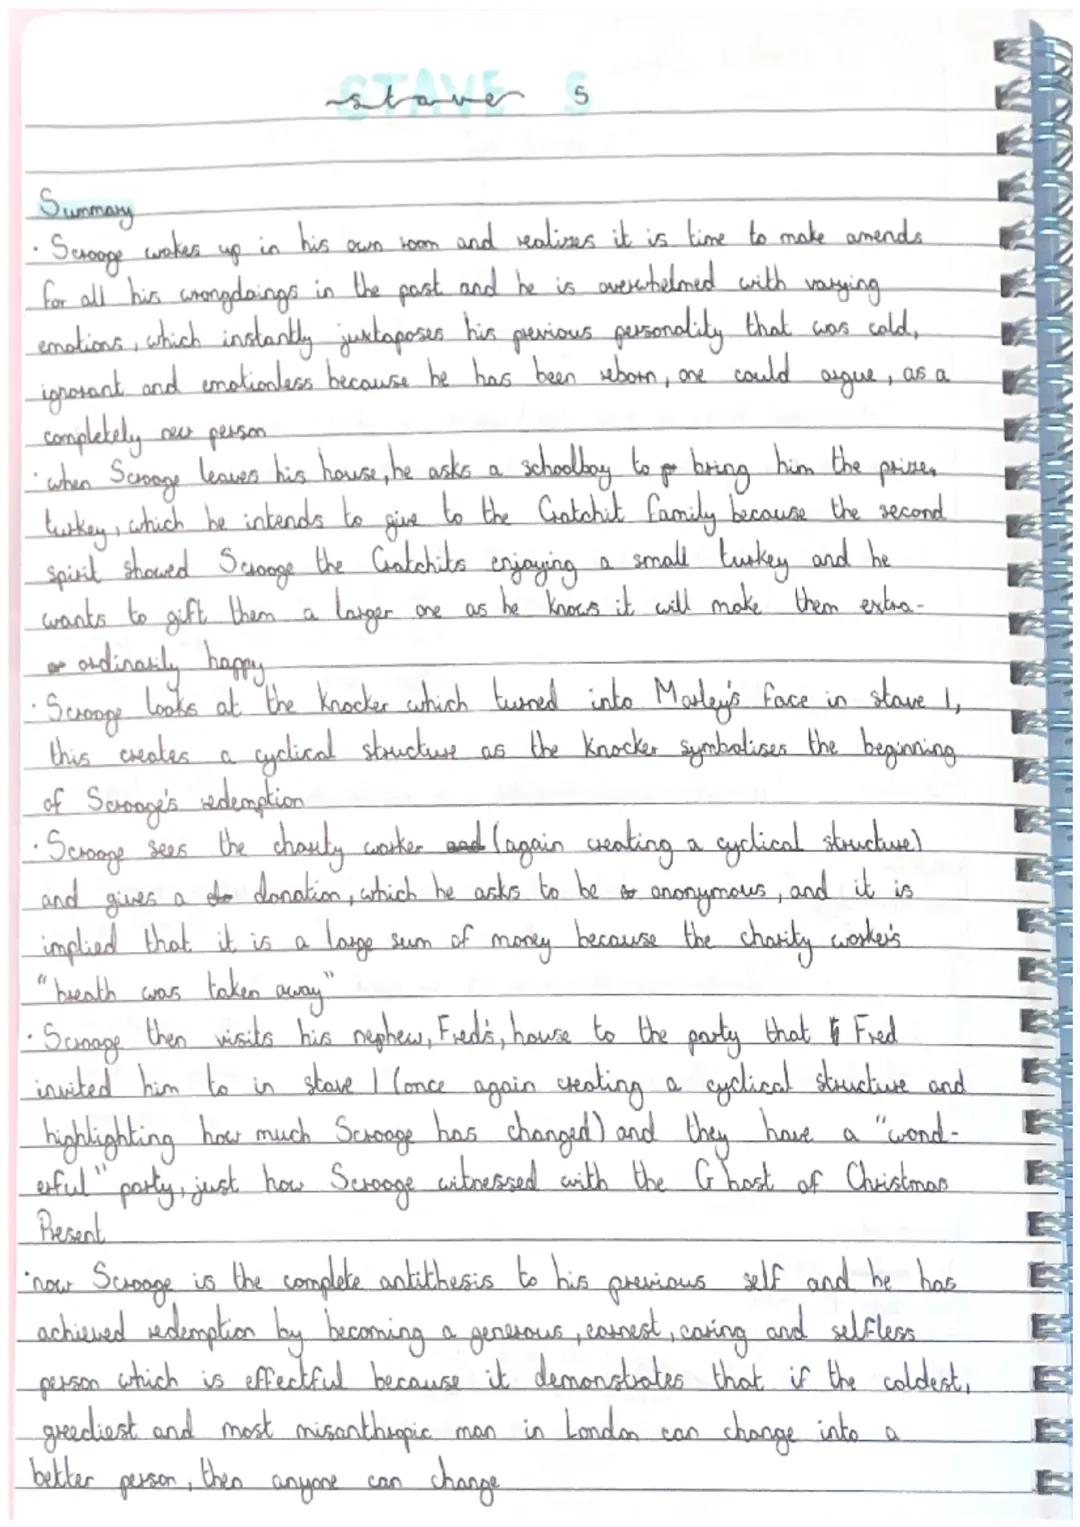 STAVE 5
stave 5
Summary
· Scrooge wakes up in his own room and realizes it is time to make amends
for all his wrongdoings in the past and he is overwhelmed with varying
emotions, which instantly juxtaposes his previous personality that was cold,
ignorant and emotionless because he has been reborn, one could argue, as a
completely new person
· when Scrooge leaves his house, he asks a schoolboy to bring him the prize
turkey, which he intends to give to the Cratchit family because the second
spirit showed Scrooge the Cratchits enjoying a small turkey and he
wants to gift them a larger one as he knows it will make them extra-
ordinarily happy
· Scrooge looks at the knocker which turned into Marley's face in stave 1,
this creates a cyclical structure as the knocker symbolises the beginning
of Scrooge's redemption
· Scrooge sees the charity worker and (again creating a cyclical structure)
and gives a donation, which he asks to be anonymous, and it is
implied that it is a large sum of money because the charity worker's
"breath was taken away"
· Scrooge then visits his nephew, Fred's, house to the party that Fred
invited him to in stave 1 (once again creating a cyclical structure and
highlighting how much Scrooge has changed) and they have a "wond-
erful" party, just how Scrooge witnessed with the Ghost of Christmas
Present
· now Scrooge is the complete antithesis to his previous self and he has
achieved redemption by becoming a generous, earnest, caring and selfless
person which is effectful because it demonstrates that if the coldest,
greediest and most misanthropic man in London can change into a
better person, then anyone can change